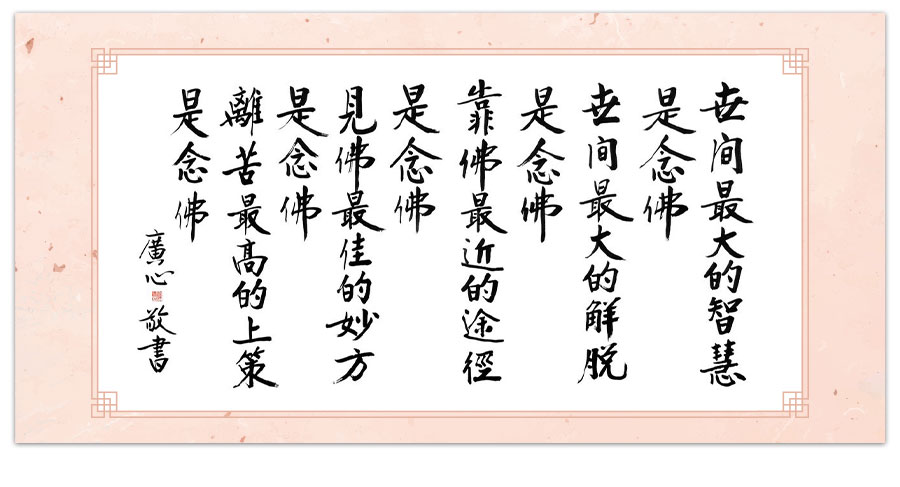 世间最大的智慧
是念佛
世间最大的解脱
是念佛
靠佛最近的途徑
是念佛
見佛最佳的妙方
是念佛
離苦最高的上策
是念佛
廣心
敬書